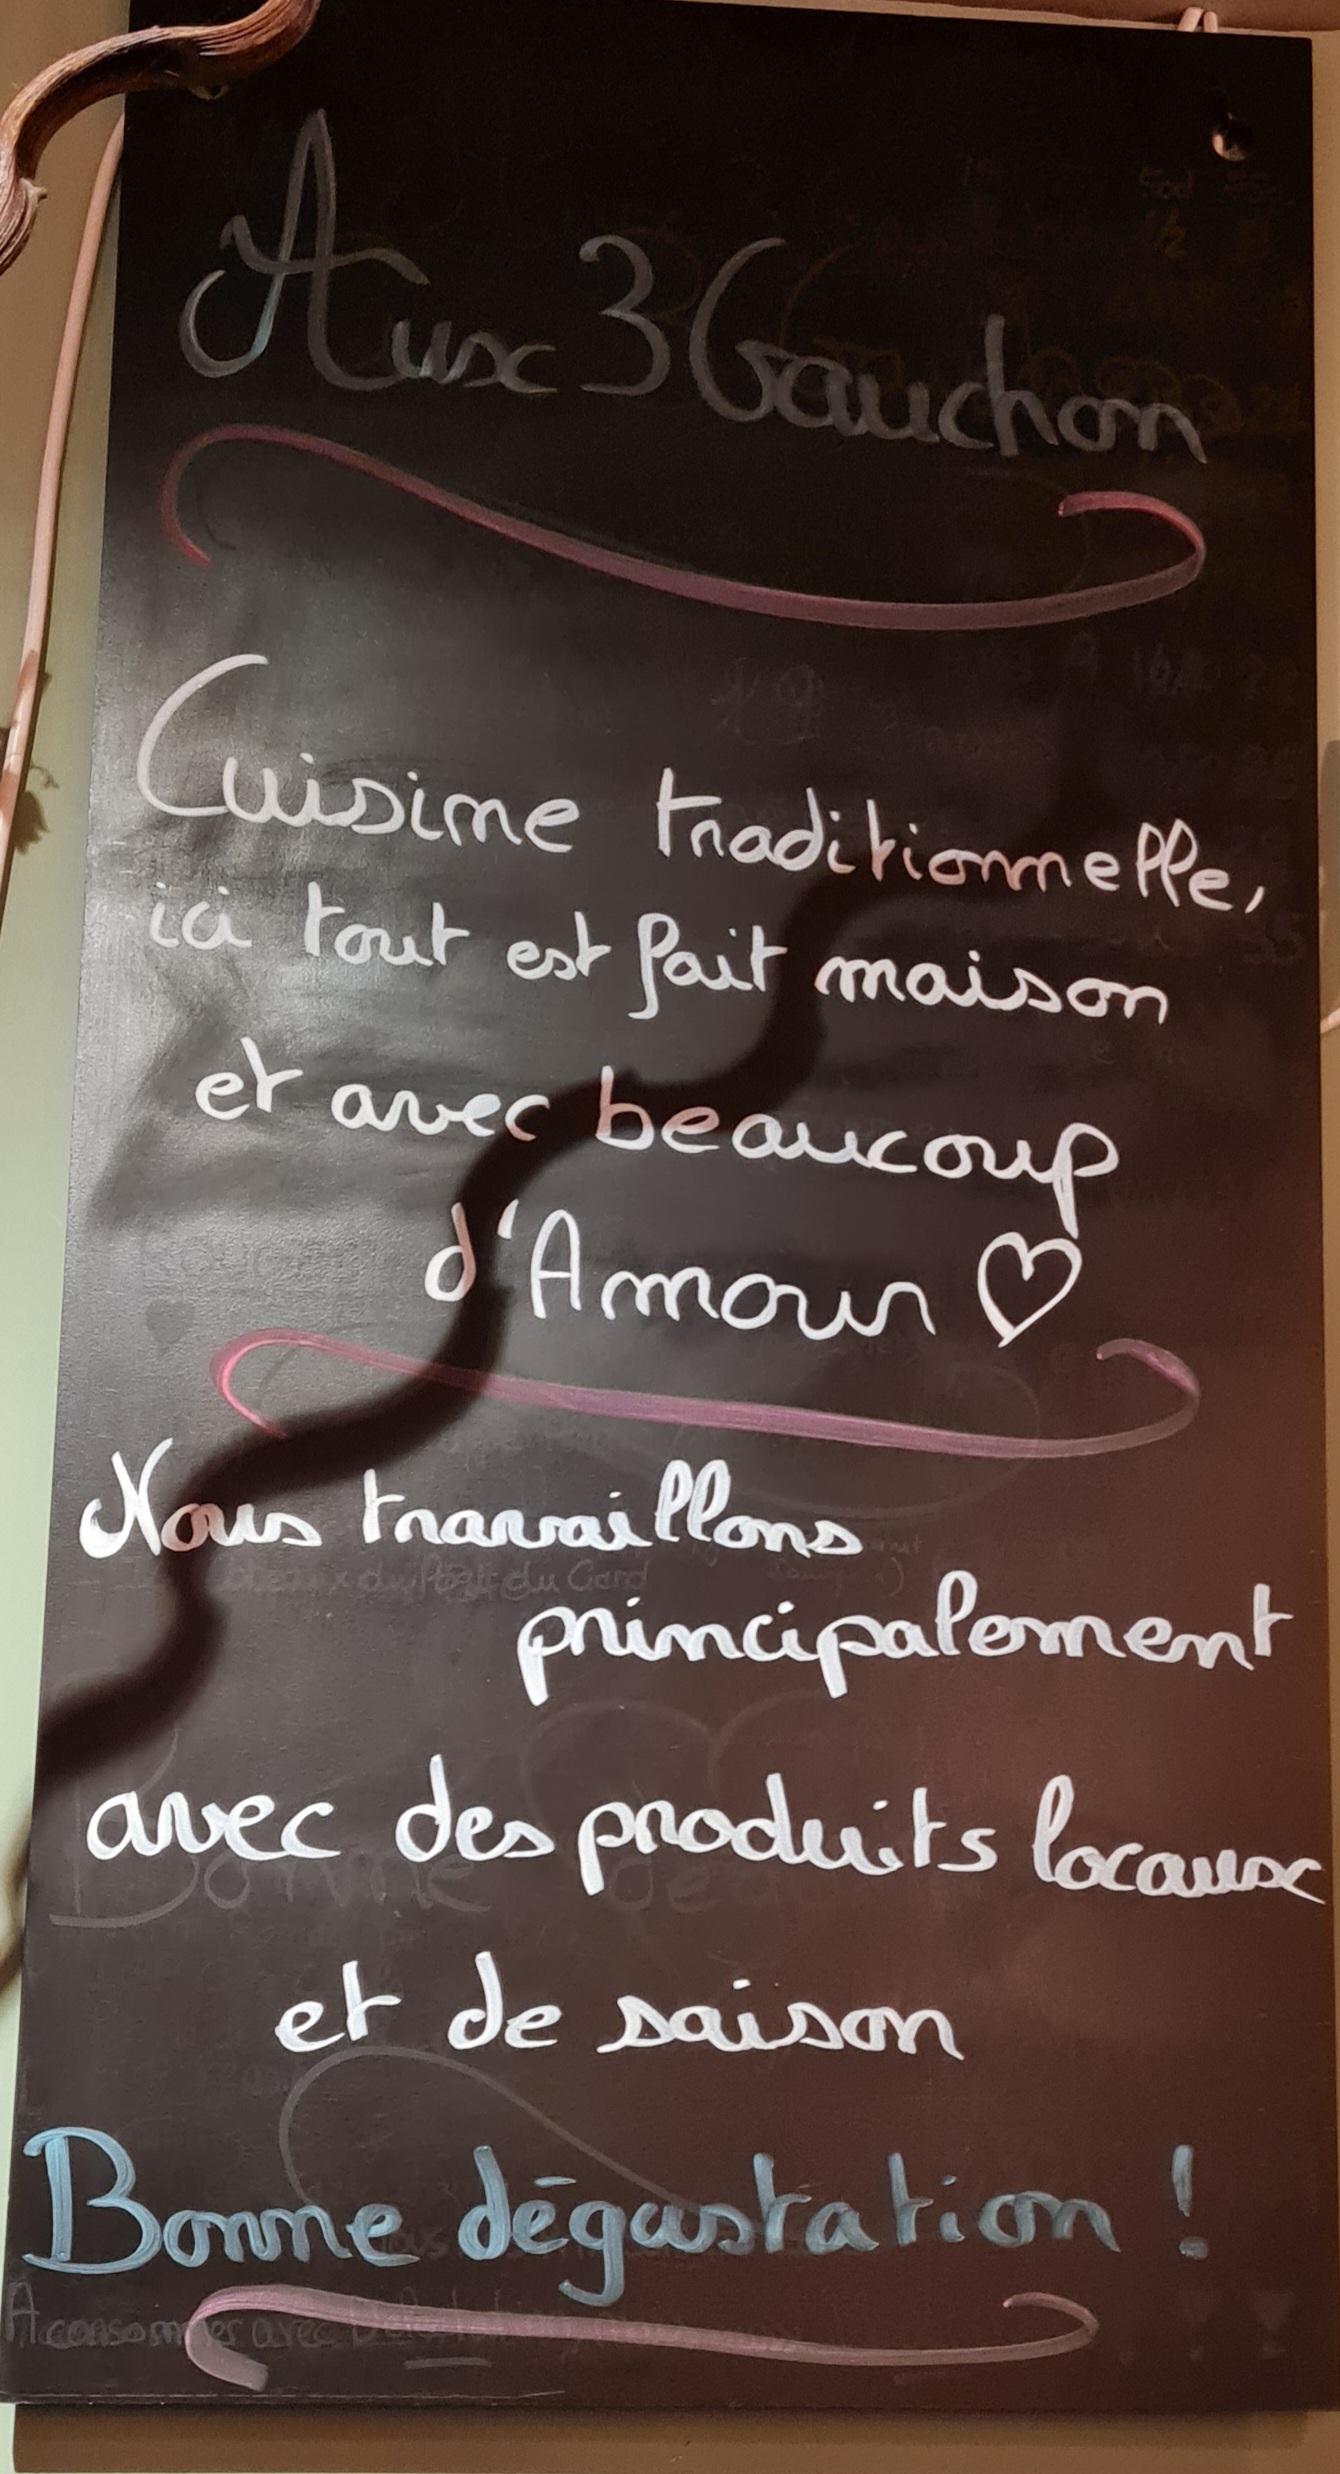 Aux 3 Gauchon
Cuisine traditionnelle,
ici tout est fait maison
et avec beaucoup
d'Amour ♡
Nous travaillons
principalement
avec des produits locaux
et de saison
Bonne dégustation !
A consommer avec